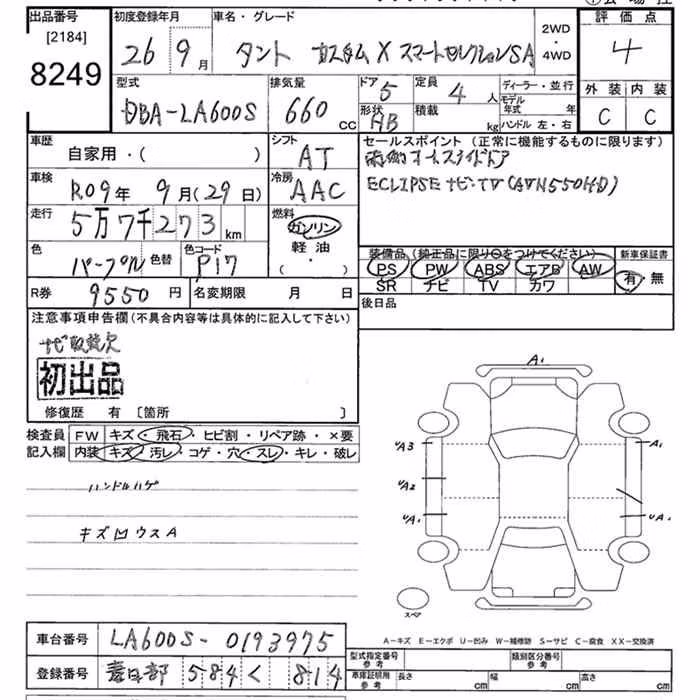 出品番号 初度登録年月 車名・グレード 2WD・4WD 評価点
[2184]
8249
26年9月 タント カスタム X スマートセレクションSA 4
型式 排気量 ドア 5 定員 4人 ディーラー・並行 外装 内装
DBA-LA600S 660cc 形状 HB 積載 kg モデル年式 年 C C
ハンドル 左・右
車歴 シフト セールスポイント(正常に機能するものに限ります)
自家用・( ) AT 両側オートスライドドア
車検 冷房
R09年 9月(29日) AAC ECLIPSE ナビ・TV(AVN550HD)
走行 燃料
5万7千273km ガソリン
軽油
( ・ )
色 色替 色コード 装備品(純正品に限り○をつけてください) 新車保証書
パープル P17 PS PW ABS エアB AW 有・無
SR ナビ TV カワ
R券 9550円 名変期限 月 日 後日品
注意事項申告欄(不具合内容等は具体的に記入して下さい)
ナビ取説欠
初出品
修復歴 有 〔箇所 〕
検査員 FW キズ・飛石・ヒビ割・リペア跡・×要
記入欄 内装 キズ・汚レ・コゲ・穴・スレ・キレ・破レ
ハンドルハゲ
キズ凹ウスA
A1
UA3 A1
UA2
UA1 UA1
スペア
A-キズ E-エクボ U-凹み W-補修跡 S-サビ C-腐食 XX-交換済
車台番号 LA600S-0193975
登録番号 春日部 584 く 814
型式指定番号 参考 類別区分番号 参考
車庫証明用 参考 長さ cm 幅 cm 高さ cm